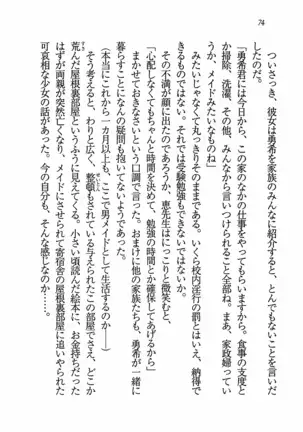 74
ついさっき、彼女は勇希を家族のみんなに紹介すると、とんでもないことを言いだ
したのだ。
「勇希君には今日から、この家のなかの仕事をやってもらいますから。食事の支度と
か洗濯、掃除、その他、みんなから言いつけられること全部ね。まあ、家政婦ってい
うか、メイドみたいなものね」
みたいじゃなくて丸っきりそのままだ。いくら校内淫行の罰とはいえ、納得で
きるものではない。それでは受験勉強もできないではないか。
その不満が顔に出たのであろうか、恵先生はにっこりと微笑むと、
「心配しなくてもちゃんと時間を決めて、勉強の時間とか確保してあげるから」
まかせておきなさいという口調で言った。おまけに他の家族たちも、勇希が一緒に
暮らすことになんの疑問も抱いてないようであった。
(本当にこれから一カ月以上も、ここで男メイドとして生活するのか――)
そう考えると、わりと広く、整頓もされている与えられたこの部屋でさえ、どこか
荒んだ屋根裏部屋というふうに見えてくる。小さい頃読んだ絵本に、お金持ちだった
はずが両親が突然亡くなり、メイドにさせられて寄宿舎の屋根裏部屋に追いやられた
可哀相な少女の話があったが、今の自分も、そんな感じなのか……。